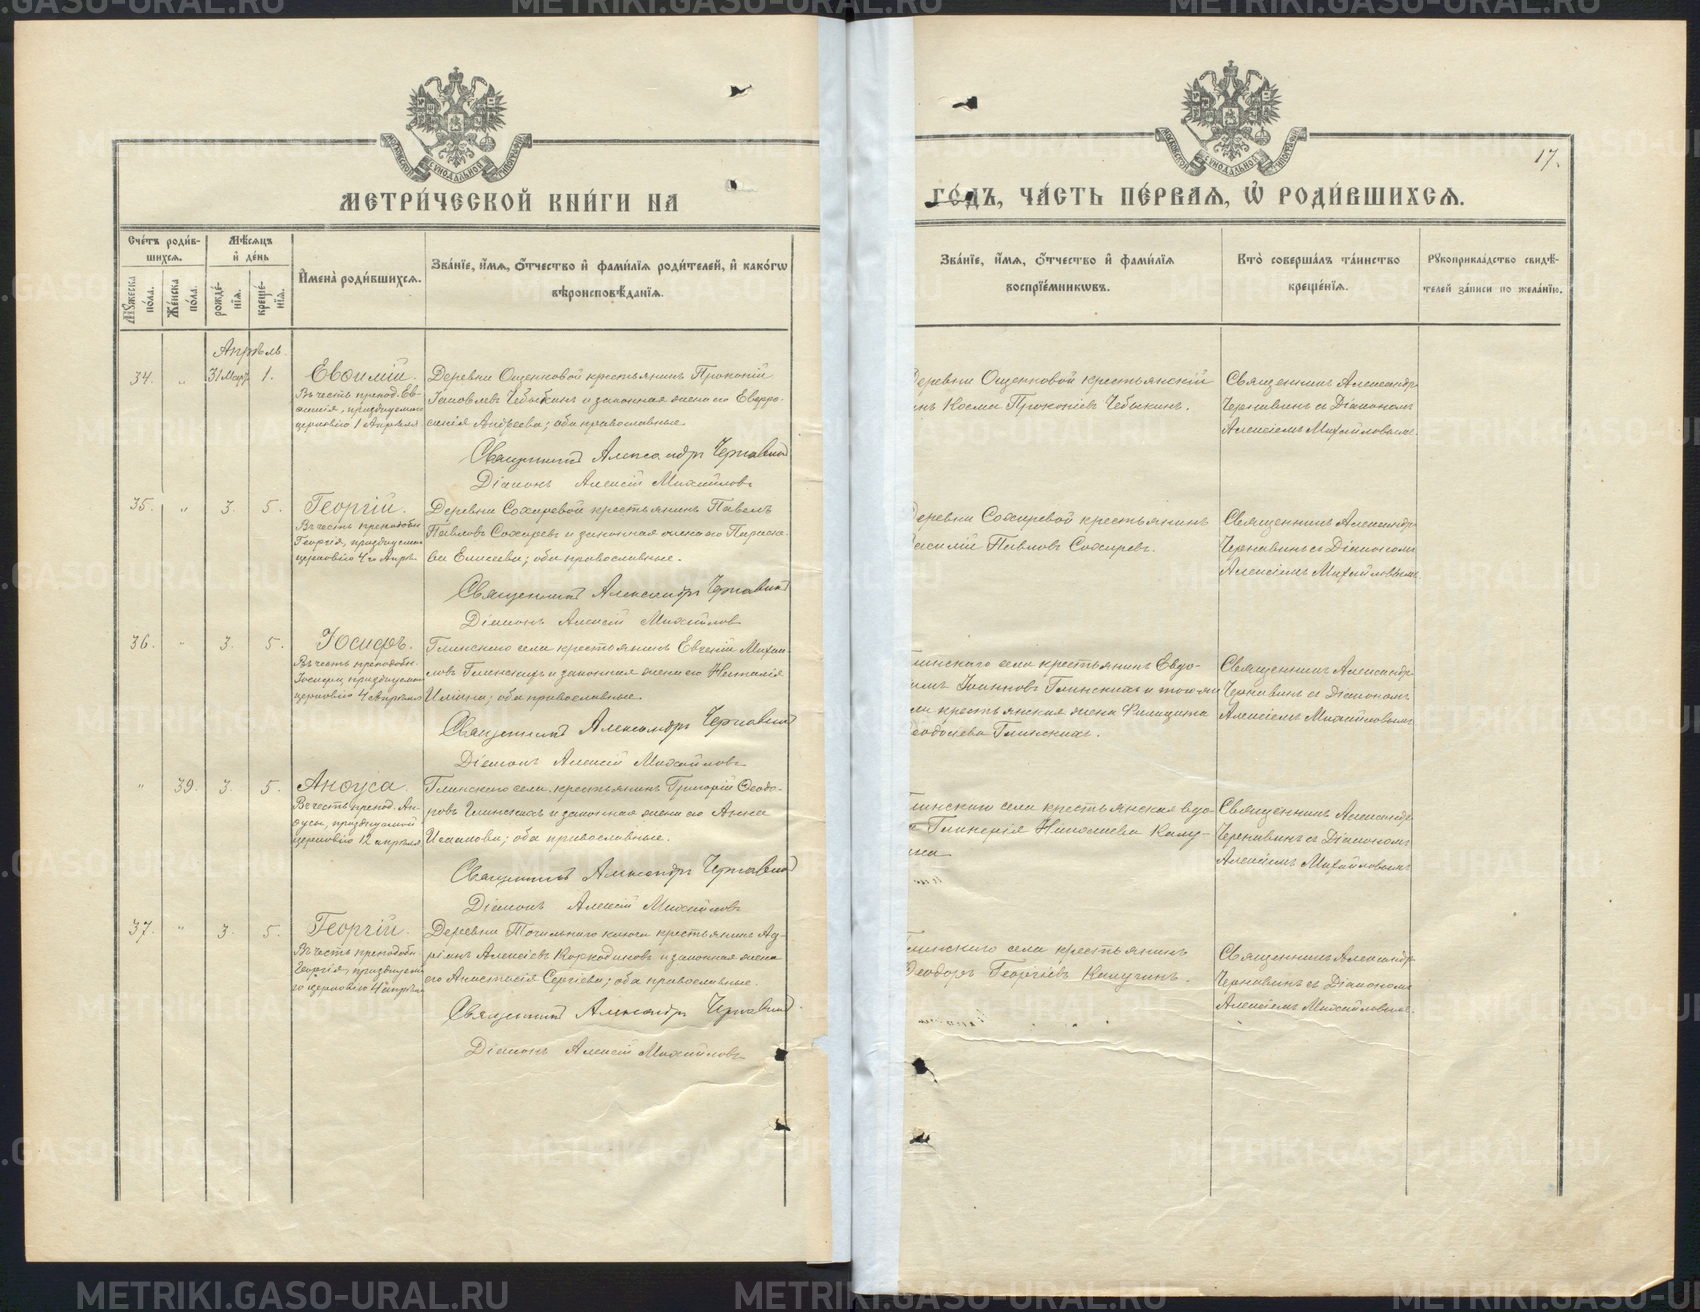 МЕТРИ́ЧЕСКОЙ КНИ́ГИ НА
ГО́ДЪ, ЧА́СТЬ ПЕ́РВАЯ, Ѡ РОДИ́ВШИХСЯ.
17.
Сче́тъ роди́в-
шихся.
Мѣ́сяцъ
и҆ де́нь
Мꙋ́жеска по́ла.
Же́нска по́ла.
рожде́-
нїя.
креще́-
нїя.
И҆мена̀ роди́вшихся.
Зва́нїе, и҆́мя, ѻ҆́тчество и҆ фами́лїя роди́телей, и҆ како́гѡ
вѣроисповѣ́данїя.
Зва́нїе, и҆́мя, ѻ҆́тчество и҆ фами́лїя
воспрїе́мникѡвъ.
Кто̀ соверша́лъ та́инство
креще́нїя.
Рꙋкоприкла́дство свидѣ́-
телей за́писи по жела́нїю.
Апрѣль.
34.
"
31 Март.
1.
Евѳимій.
Въ честь препод. Ев-
ѳимія, празднуемаго
церковію 1 Апрѣля
Деревни Ощепковой крестьянинъ Прокопій
Іаковлевъ Чебыкинъ и законная жена его Евфро-
синія Андреева; оба православные.
Священникъ Александръ Чернавинъ
Діаконъ Алексій Михайловъ
Деревни Ощепковой крестьянскій
сынъ Косма Прокопіевъ Чебыкинъ.
Священникъ Александръ
Чернавинъ съ Діакономъ
Алексіемъ Михайловымъ.
35.
"
3.
5.
Георгій.
Въ честь преподобн.
Георгія, празднуемаго
церковію 4го Апрѣ.
Деревни Сохаревой крестьянинъ Павелъ
Павловъ Сохаревъ и законная жена его Параске-
ва Елисеева; оба православные.
Священникъ Александръ Чернавинъ
Діаконъ Алексій Михайловъ
Деревни Сохаревой крестьянинъ
Василій Павловъ Сохаревъ.
Священникъ Александръ
Чернавинъ съ Діакономъ
Алексіемъ Михайловымъ
36.
"
3.
5.
Іосифъ.
Въ честь преподобн.
Іосифа, празднуемаго
церковію 4 Апрѣля
Глинскаго села крестьянинъ Евгеній Михаи-
ловъ Глинскихъ и законная жена его Наталія
Ильина; оба православные.
Священникъ Александръ Чернавинъ
Діаконъ Алексій Михайловъ
Глинскаго села крестьянинъ Евдо-
кимъ Іоанновъ Глинскихъ и того же
села крестьянская жена Филицата
Ѳеодосіева Глинскихъ.
Священникъ Александръ
Чернавинъ съ Діакономъ
Алексіемъ Михайловымъ
"
39.
3.
5.
Анѳуса.
Въ честь препод. Ан-
ѳусы, празднуемой
церковію 12 апрѣля
Глинскаго села, крестьянинъ Григорій Ѳеодо-
ровъ Глинскихъ и законная жена его Анна
Исаакова; оба православные.
Священникъ Александръ Чернавинъ
Діаконъ Алексій Михайловъ
Глинскаго села крестьянская вдо-
ва Гликерія Николаева Калу-
гина
Священникъ Александръ
Чернавинъ съ Діакономъ
Алексіемъ Михайловымъ
37.
"
3.
5.
Георгій.
Въ честь преподобн.
Георгія, празднуема-
го церковію 4 апрѣля
Деревни Точильнаго ключа крестьянинъ Ад-
ріанъ Алексіевъ Коркодиновъ и законная жена
его Анастасія Сергіева; оба православные.
Священникъ Александръ Чернавинъ.
Діаконъ Алексій Михайловъ
Глинскаго села крестьянинъ
Ѳеодоръ Георгіевъ Калугинъ.
Священникъ Александръ
Чернавинъ съ Діакономъ
Алексіемъ Михайловымъ.
METRIKI.GASO-URAL.RU